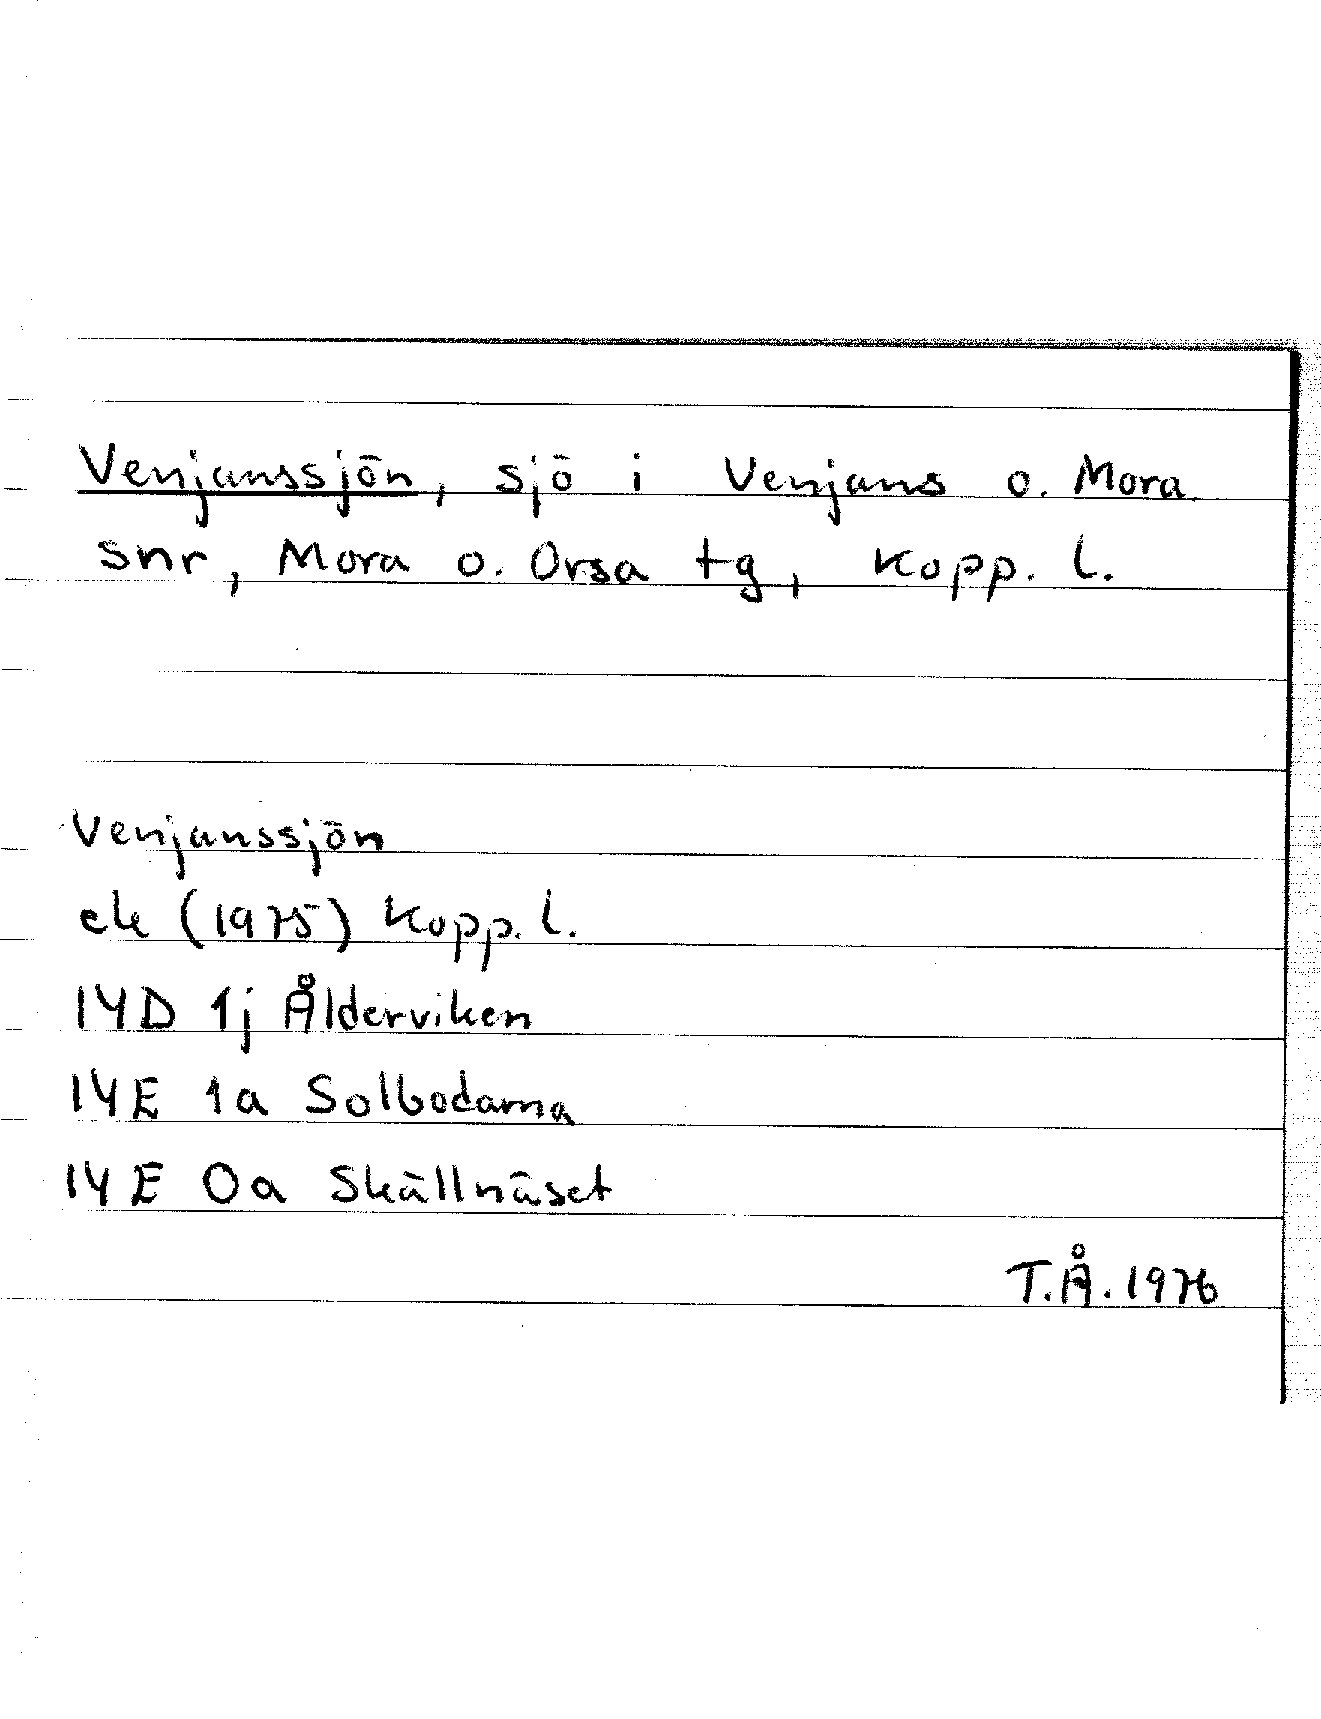 Venjanssjön, sjö i Venjans o. Mora
snr, Mora o. Orsa tg, Kopp. l.
Venjanssjön
ek (1975) Kopp. l.
14D 1j Ålderviken
14E 1a Solbodarna
14E 0a Skällnäset
T.Å. 1976